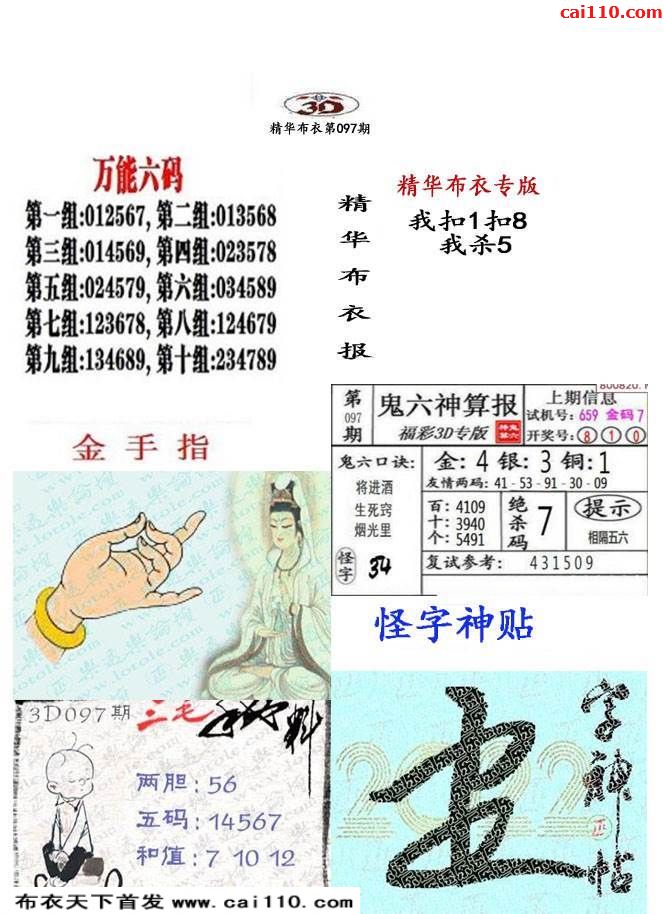 cai110.com
3D
精华布衣第097期
万能六码
第一组:012567, 第二组:013568
第三组:014569, 第四组:023578
第五组:024579, 第六组:034589
第七组:123678, 第八组:124679
第九组:134689, 第十组:234789
精华布衣报
精华布衣专版
我扣1扣8
我杀5
第097期
鬼六神算报
福彩3D专版
上期信息
试机号: 659 金码 7
开奖号: 8 1 0
鬼六口诀:
将进酒
生死窍
烟光里
怪字
34
金: 4 银: 3 铜: 1
友情两码: 41-53-91-30-09
百: 4109
十: 3940
个: 5491
绝杀码
7
提示
相隔五六
复试参考: 431509
金手指
怪字神贴
3D097期
三毛
两胆: 56
五码: 14567
和值: 7 10 12
2022
字神帖
布衣天下首发 www.cai110.com